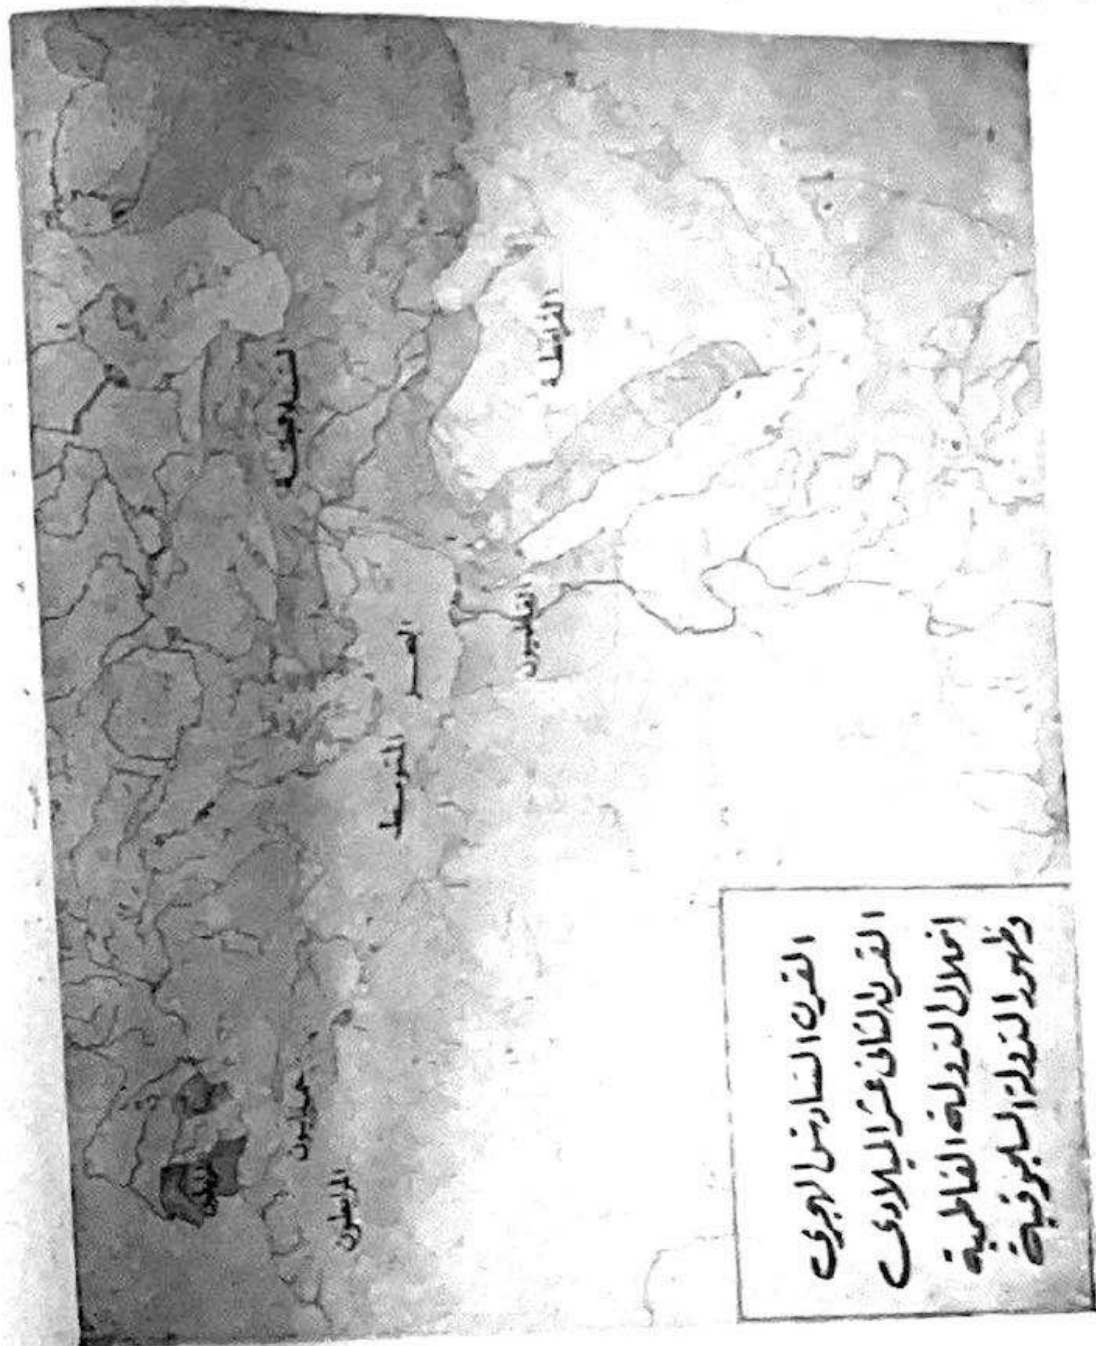 القرن السادس الهجري
القرن الثانى عشر الميلادى
انحلال الدولة الفاطمية
وظهور الدولة السلجوقية
القرامطة
الفاطميون
البحر
المتوسط
حماديون
المرابطون